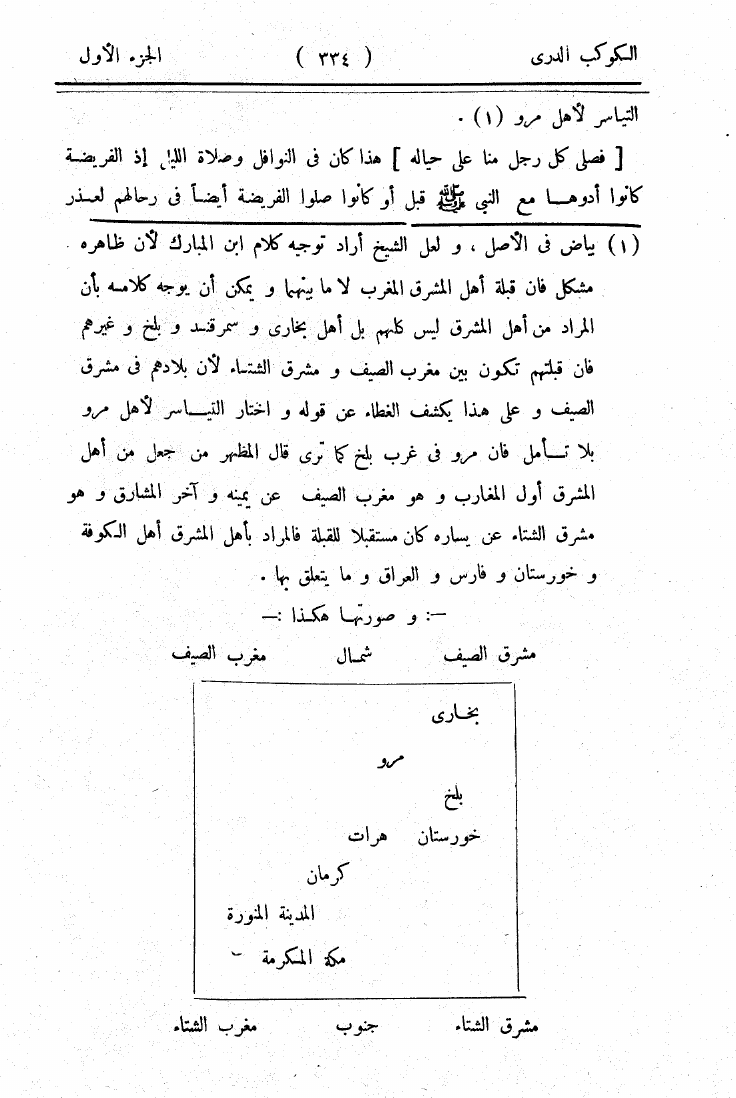 الكوكب الدرى ( ٣٣٤ ) الجزء الأول
التياسر لأهل مرو (١) .
[ فصلى كل رجل منا على حياله ] هذا كان فى النوافل وصلاة الليل إذ الفريضة
كانوا أدوهـا مع النبي ﷺ قبل أو كانوا صلوا الفريضة أيضاً فى رحالهم لعـذر
(١) بياض فى الأصل ، و لعل الشيخ أراد توجيه كلام ابن المبارك لأن ظاهره
مشكل فان قبلة أهل المشرق المغرب لا ما بينهما و يمكن أن يوجه كلامـه بأن
المراد من أهل المشرق ليس كلهم بل أهل بخارى و سمرقنـد و بلخ و غيرهم
فان قبلتهم تكون بين مغرب الصيف و مشرق الشتـاء لأن بلادهم فى مشرق
الصيف و على هـذا يكشف الغطاء عن قوله و اختار التيـاسر لأهل مرو
بلا تـأمل فان مرو فى غرب بلخ كما ترى قال المظهر من جعل من أهل
المشرق أول المغارب و هو مغرب الصيف عن يمينه و آخر المشارق و هو
مشرق الشتاء عن يساره كان مستقبلا للقبلة فالمراد بأهل المشرق أهل الكوفة
و خورستان و فارس و العراق و ما يتعلق بها .
—: و صورتهـا هكـذا :—
مشرق الصيف شمـال مغرب الصيف
بخـارى
مرو
بلخ
خورستان هرات
كرمان
المدينة المنورة
مكة المكرمة
مشرق الشتاء جنوب مغرب الشتاء